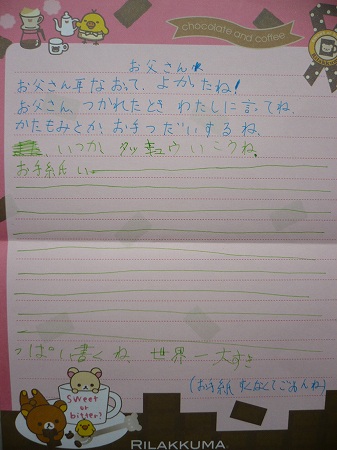 chocolate and coffee
お父さんへ
お父さん耳なおって、よかたね!
お父さん、つかれたとき わたしに言ってね。
かたもみとか、お手つだいするね、
いつか タッキュウ いこうね、
お手紙い
っぱい書くね、世界一大すき
(お手紙 すくなくてごめんね)
sweet or bitter?
RILAKKUMA